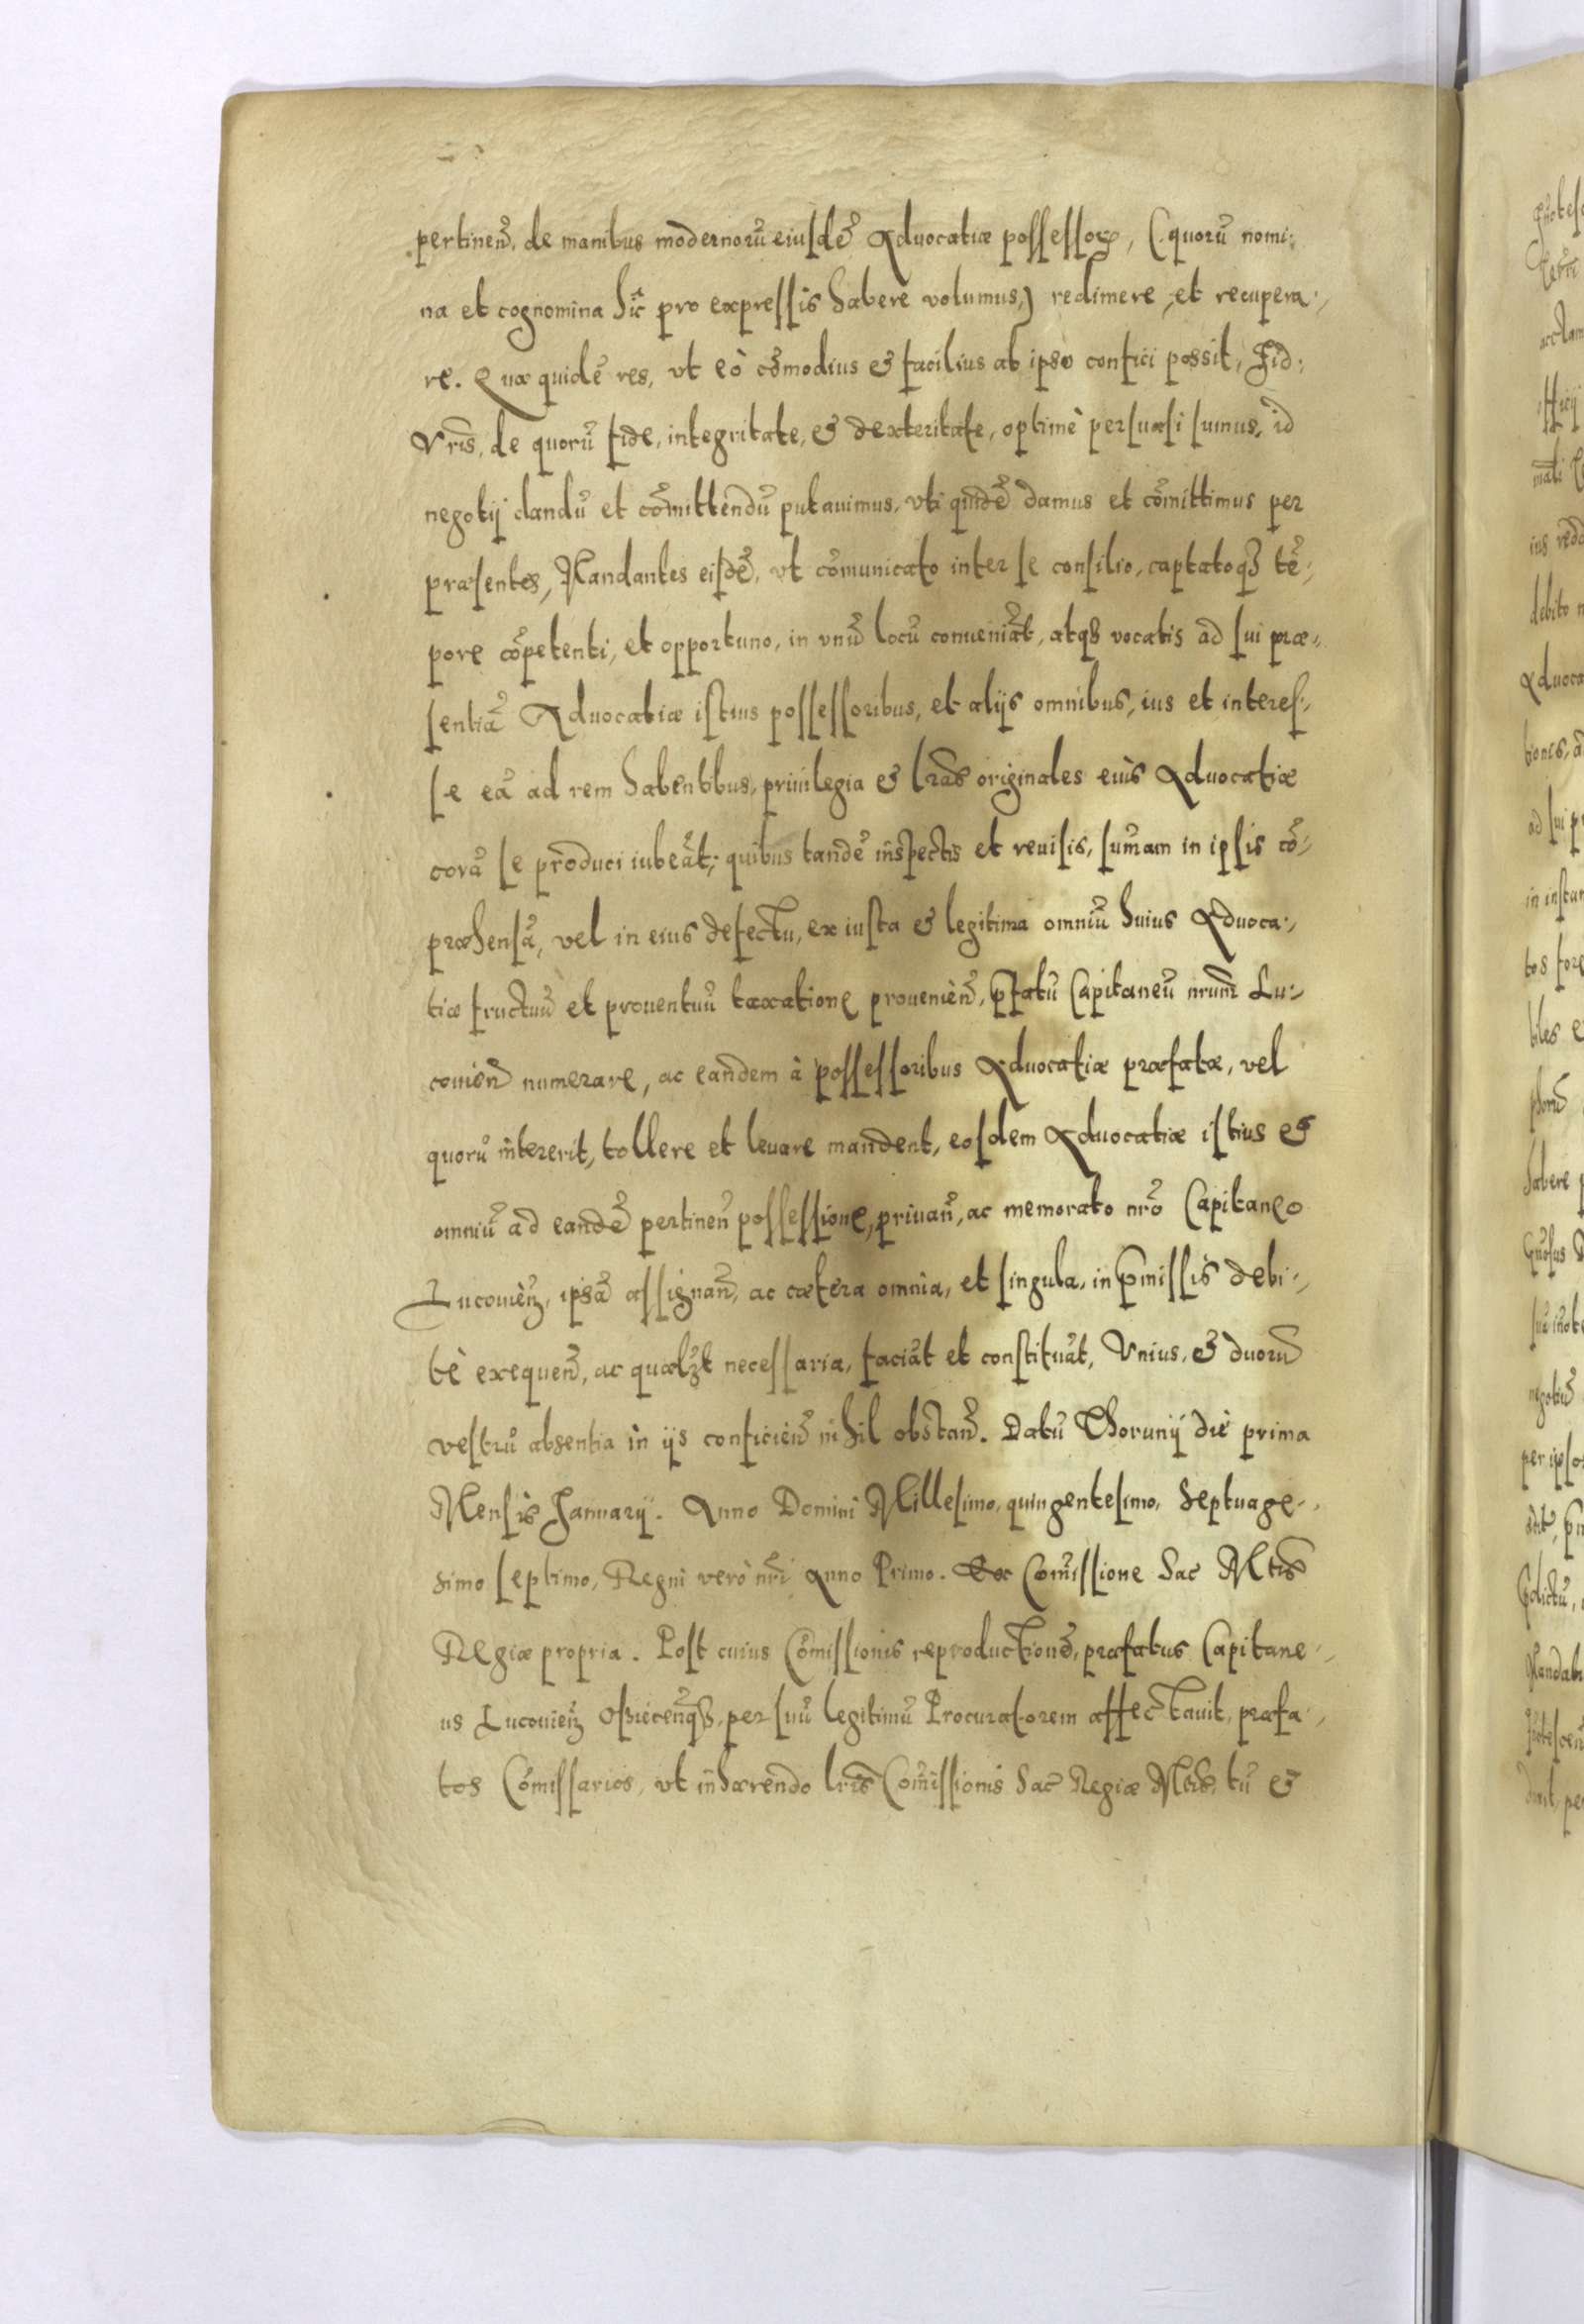 pertineñ, de manibus modernorũ eiusdẽ Aduocatiæ possessorꝝ, (quorũ nomi:
na et cognomina hîc pro expressis habere volumus,) redimere et recupera:
re. Quæ quidẽ res, vt eò cõmodius & facilius ab ipso confici possit, Fid:
Vris, de quorũ fide, integritate, & dexteritate, optimè persuasi sumus, id
negotij dandũ et cõmittendũ putauimus, vti quidẽ damus et cõmittimus per
præsentes, Mandantes eisdẽ, vt cõmunicato inter se consilio, captatoqȝ tẽ:
pore cõpetenti, et opportuno, in vnũ locũ conueniãt, atqȝ vocatis ad sui præ:
sentiã Aduocatiæ istius possessoribus, et alijs omnibus, ius et interes:
se eã ad rem habentibus, priuilegia & lras originales eius Aduocatiæ
corã se produci iubeãt; quibus tandẽ inspectis et reuisis, sum̃am in ipsis cõ:
præhensã, vel in eius defectu, ex iusta & legitima omniũ huius Aduoca:
tiæ fructuũ et prouentuũ taxatione prouenieñ, p̃fatũ Capitaneũ nrum̃ Lu:
couieñ numerare, ac eandem à possessoribus Aduocatiæ præfatæ, vel
quorũ intererit, tollere et leuare mandent, eosdem Aduocatiæ istius &
omniũ ad eandẽ pertineñ possessione, priuañ, ac memorato nrõ Capitaneo
Lucouieñ, ipsã assignañ, ac cætera omnia, et singula, in p̃missis debi:
tè exequeñ, ac quælȝt necessaria, faciãt et constituãt, Vnius, & duorũ
vestrũ absentia in ijs conficieñ nihil obstañ. Datũ Thorunij die prima
Mensis Januarij. Anno Domini Millesimo, quingentesimo, Septuage:
simo septimo, Regni verò nrĩ Anno Primo. Ex Com̃issione Sac̃ Mtis
Regiæ propria. Post cuius Cõmissionis reproductionẽ, præfatus Capitane:
us Lucouieñ Osiecenqȝ, per suũ legitimũ Procuratorem affectauit, præfa:
tos Cõmissarios, vt inhærendo lris̃ Com̃issionis Sac̃ Regiæ Mtis, tũ &